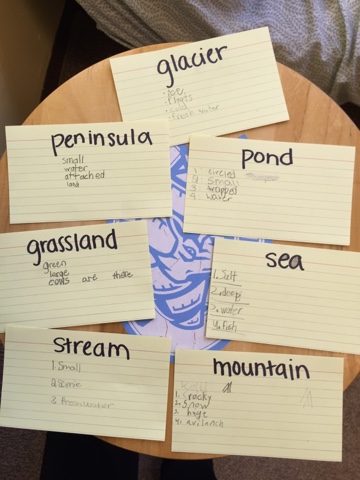 glacier
water
peninsula
small
water
attached
land
pond
1. circled
2. small
3. trapped
4. water
grassland
green
large
cows are there
sea
1. Salt
2. deep
3. water
4. fish
stream
1. Small
2.
3.
mountain
1. rocky
2. Snow
3. huge
4. avilanch